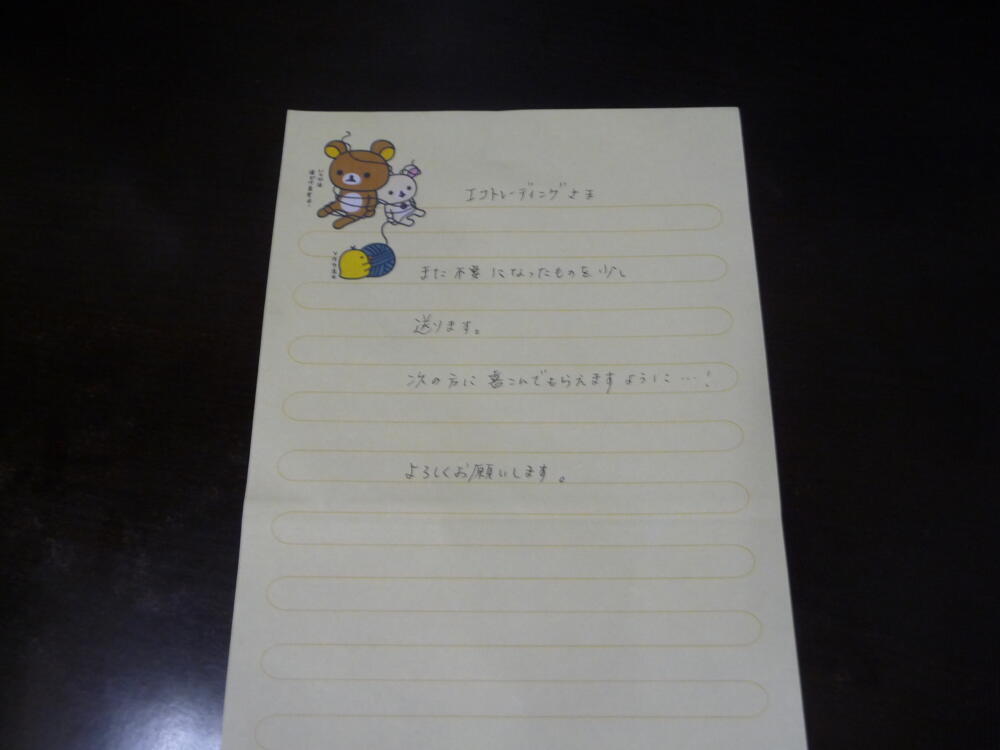 エコトレーディングさま
また不要になったものを少し
送ります。
次の方に喜こんでもらえますように…!
よろしくお願いします。